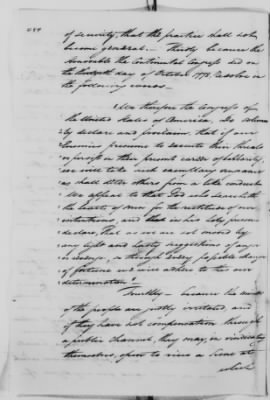 of security, that the practice shall not
become general. — Thirdly because the
Honourable the Continental Congress did on
the thirtieth day of October 1778. resolve in
the following words —
"We therefore the Congress of
"the United States of America, do solemn
"ly declare and proclaim that if our
"Enemies presume to execute their threats
"or persist in their present career of barbarity,
"we will take such exemplary vengeance
"as shall deter others from a like conduct.
"We appeal to that God who searcheth
"the hearts of men for the rectitude of our
"intentions, and that in his holy presence
"declare, That as we are not moved by
"any light and hasty suggestions of anger
"or revenge, so through every possible change
"of fortune we will adhere to this our
"determination".
Fourthly — because the minds
of the people are justly irritated, and
if they have not compensation through
a public Channel, they may, in vindicating
themselves, open to view a Scene at
which